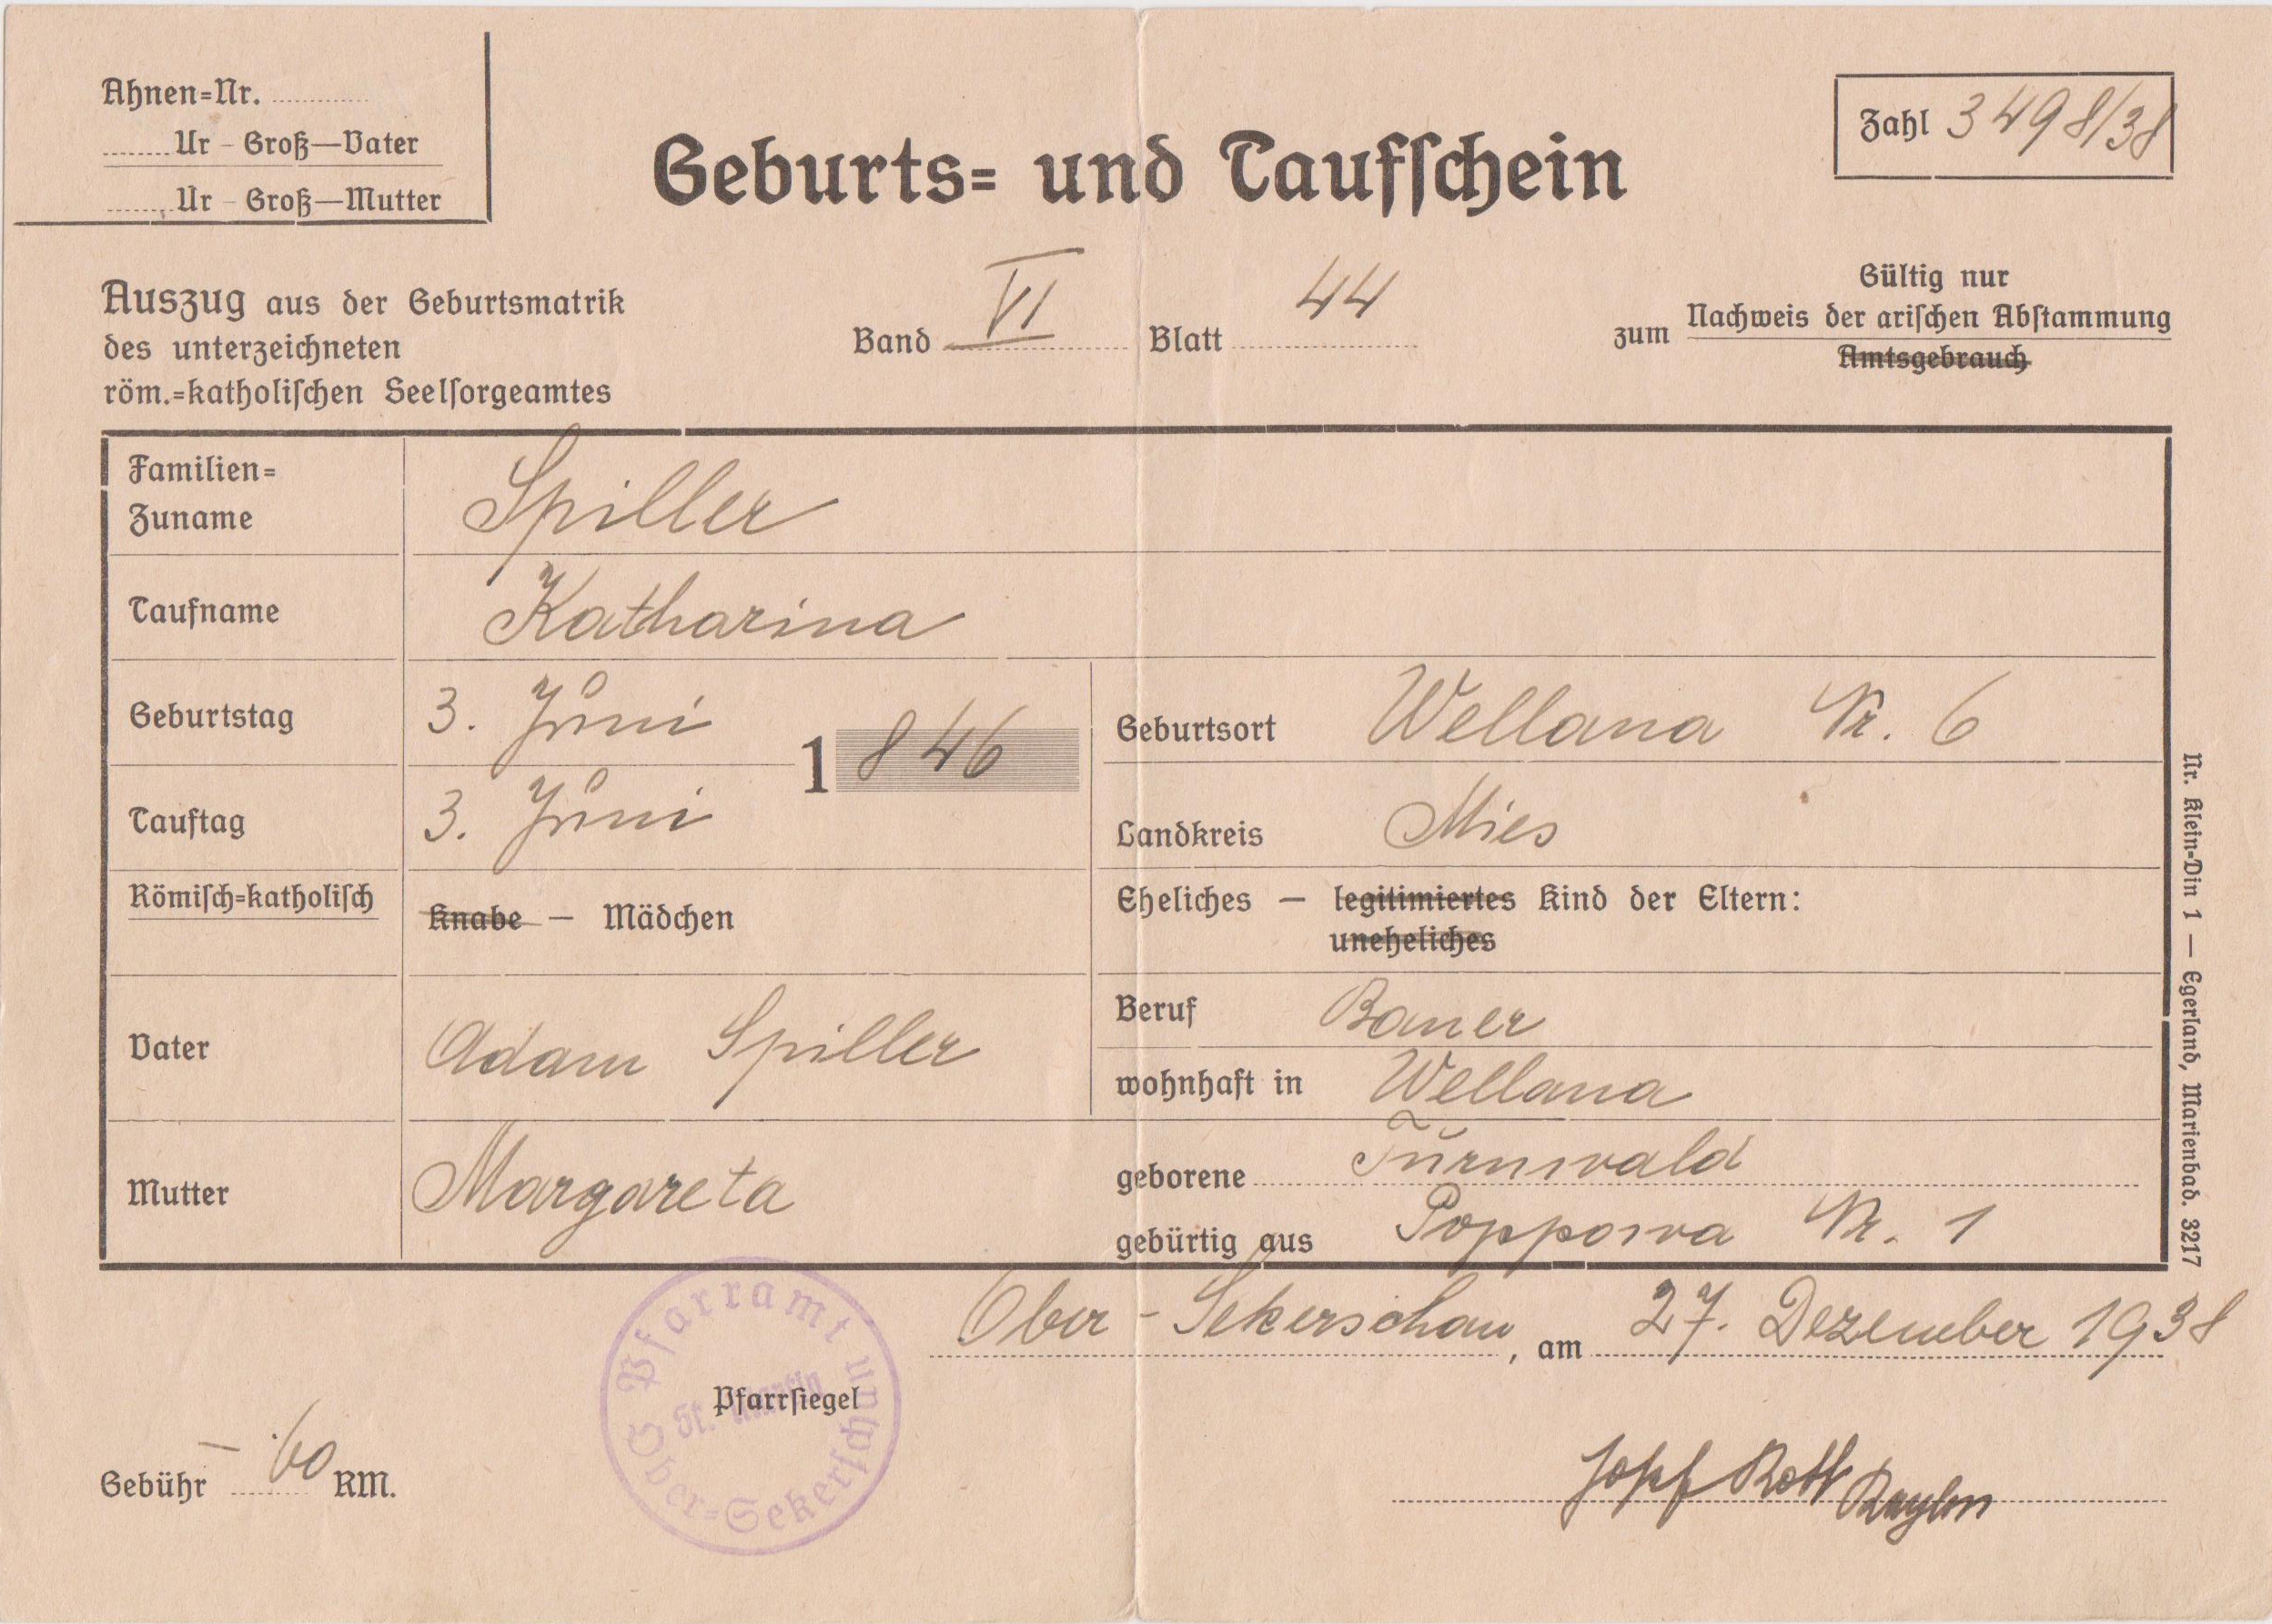 Ahnen=Nr. ............
........Ur - Groß—Vater
........Ur - Groß—Mutter
Geburts= und Taufschein
Zahl 3498/38
Auszug aus der Geburtsmatrik
des unterzeichneten
röm.=katholischen Seelsorgeamtes
Band VI Blatt 44
Gültig nur
zum Nachweis der arischen Abstammung
Amtsgebrauch
Familien=
Zuname Spiller
Taufname Katharina
Geburtstag 3. Juni 1846 Geburtsort Wellana Nr. 6
Tauftag 3. Juni Landkreis Mies
Römisch=katholisch Knabe — Mädchen Eheliches — legitimiertes Kind der Eltern:
uneheliches
Vater Adam Spiller Beruf Bauer
wohnhaft in Wellana
Mutter Margareta geborene Turnwald
gebürtig aus Poppowa Nr. 1
Nr. Klein=Din 1 — Egerland, Marienbad. 3217
Ober-Sekerschan, am 27. Dezember 1938
Pfarramt
St. Martin
Ober=Sekerschan
Pfarrsiegel
Gebühr -.60 RM.
Josef Rott